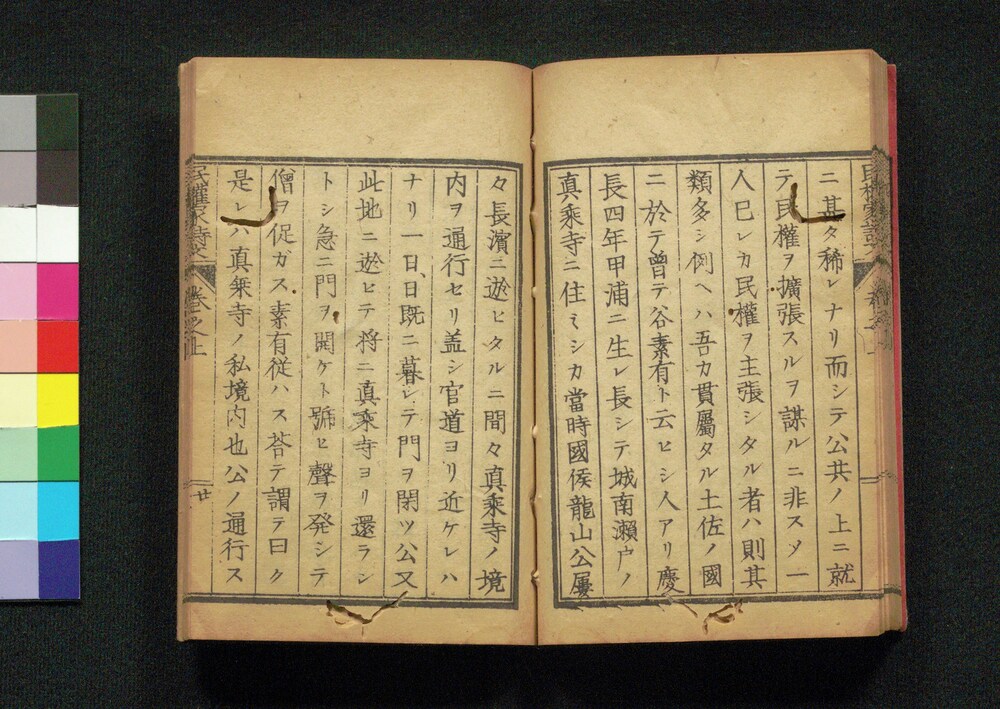 ニ甚タ稀レナリ而シテ公共ノ上ニ就
テ民權ヲ擴張スルヲ謀ルニ非スメ一
人已レカ民權ヲ主張シタル者ハ則其
類多シ例ヘハ吾カ貫屬タル土佐ノ國
ニ於テ曾テ谷素有ト云ヒシ人アリ慶
長四年甲浦ニ生レ長シテ城南瀬戸ノ
真乘寺ニ住ミシカ當時國侯龍山公屢
々長濱ニ遊ヒタルニ間々真乘寺ノ境
内ヲ通行セリ盖シ官道ヨリ近ケレハ
ナリ一日、日既ニ暮レテ門ヲ閉ツ公又
此地ニ遊ヒテ将ニ真乘寺ヨリ還ラン
トシ急ニ門ヲ開ケト號ヒ聲ヲ発シテ
僧ヲ促カス素有従ハス荅テ謂テ曰ク
是レハ真乘寺ノ私境内也公ノ通行ス
卷之上
廿